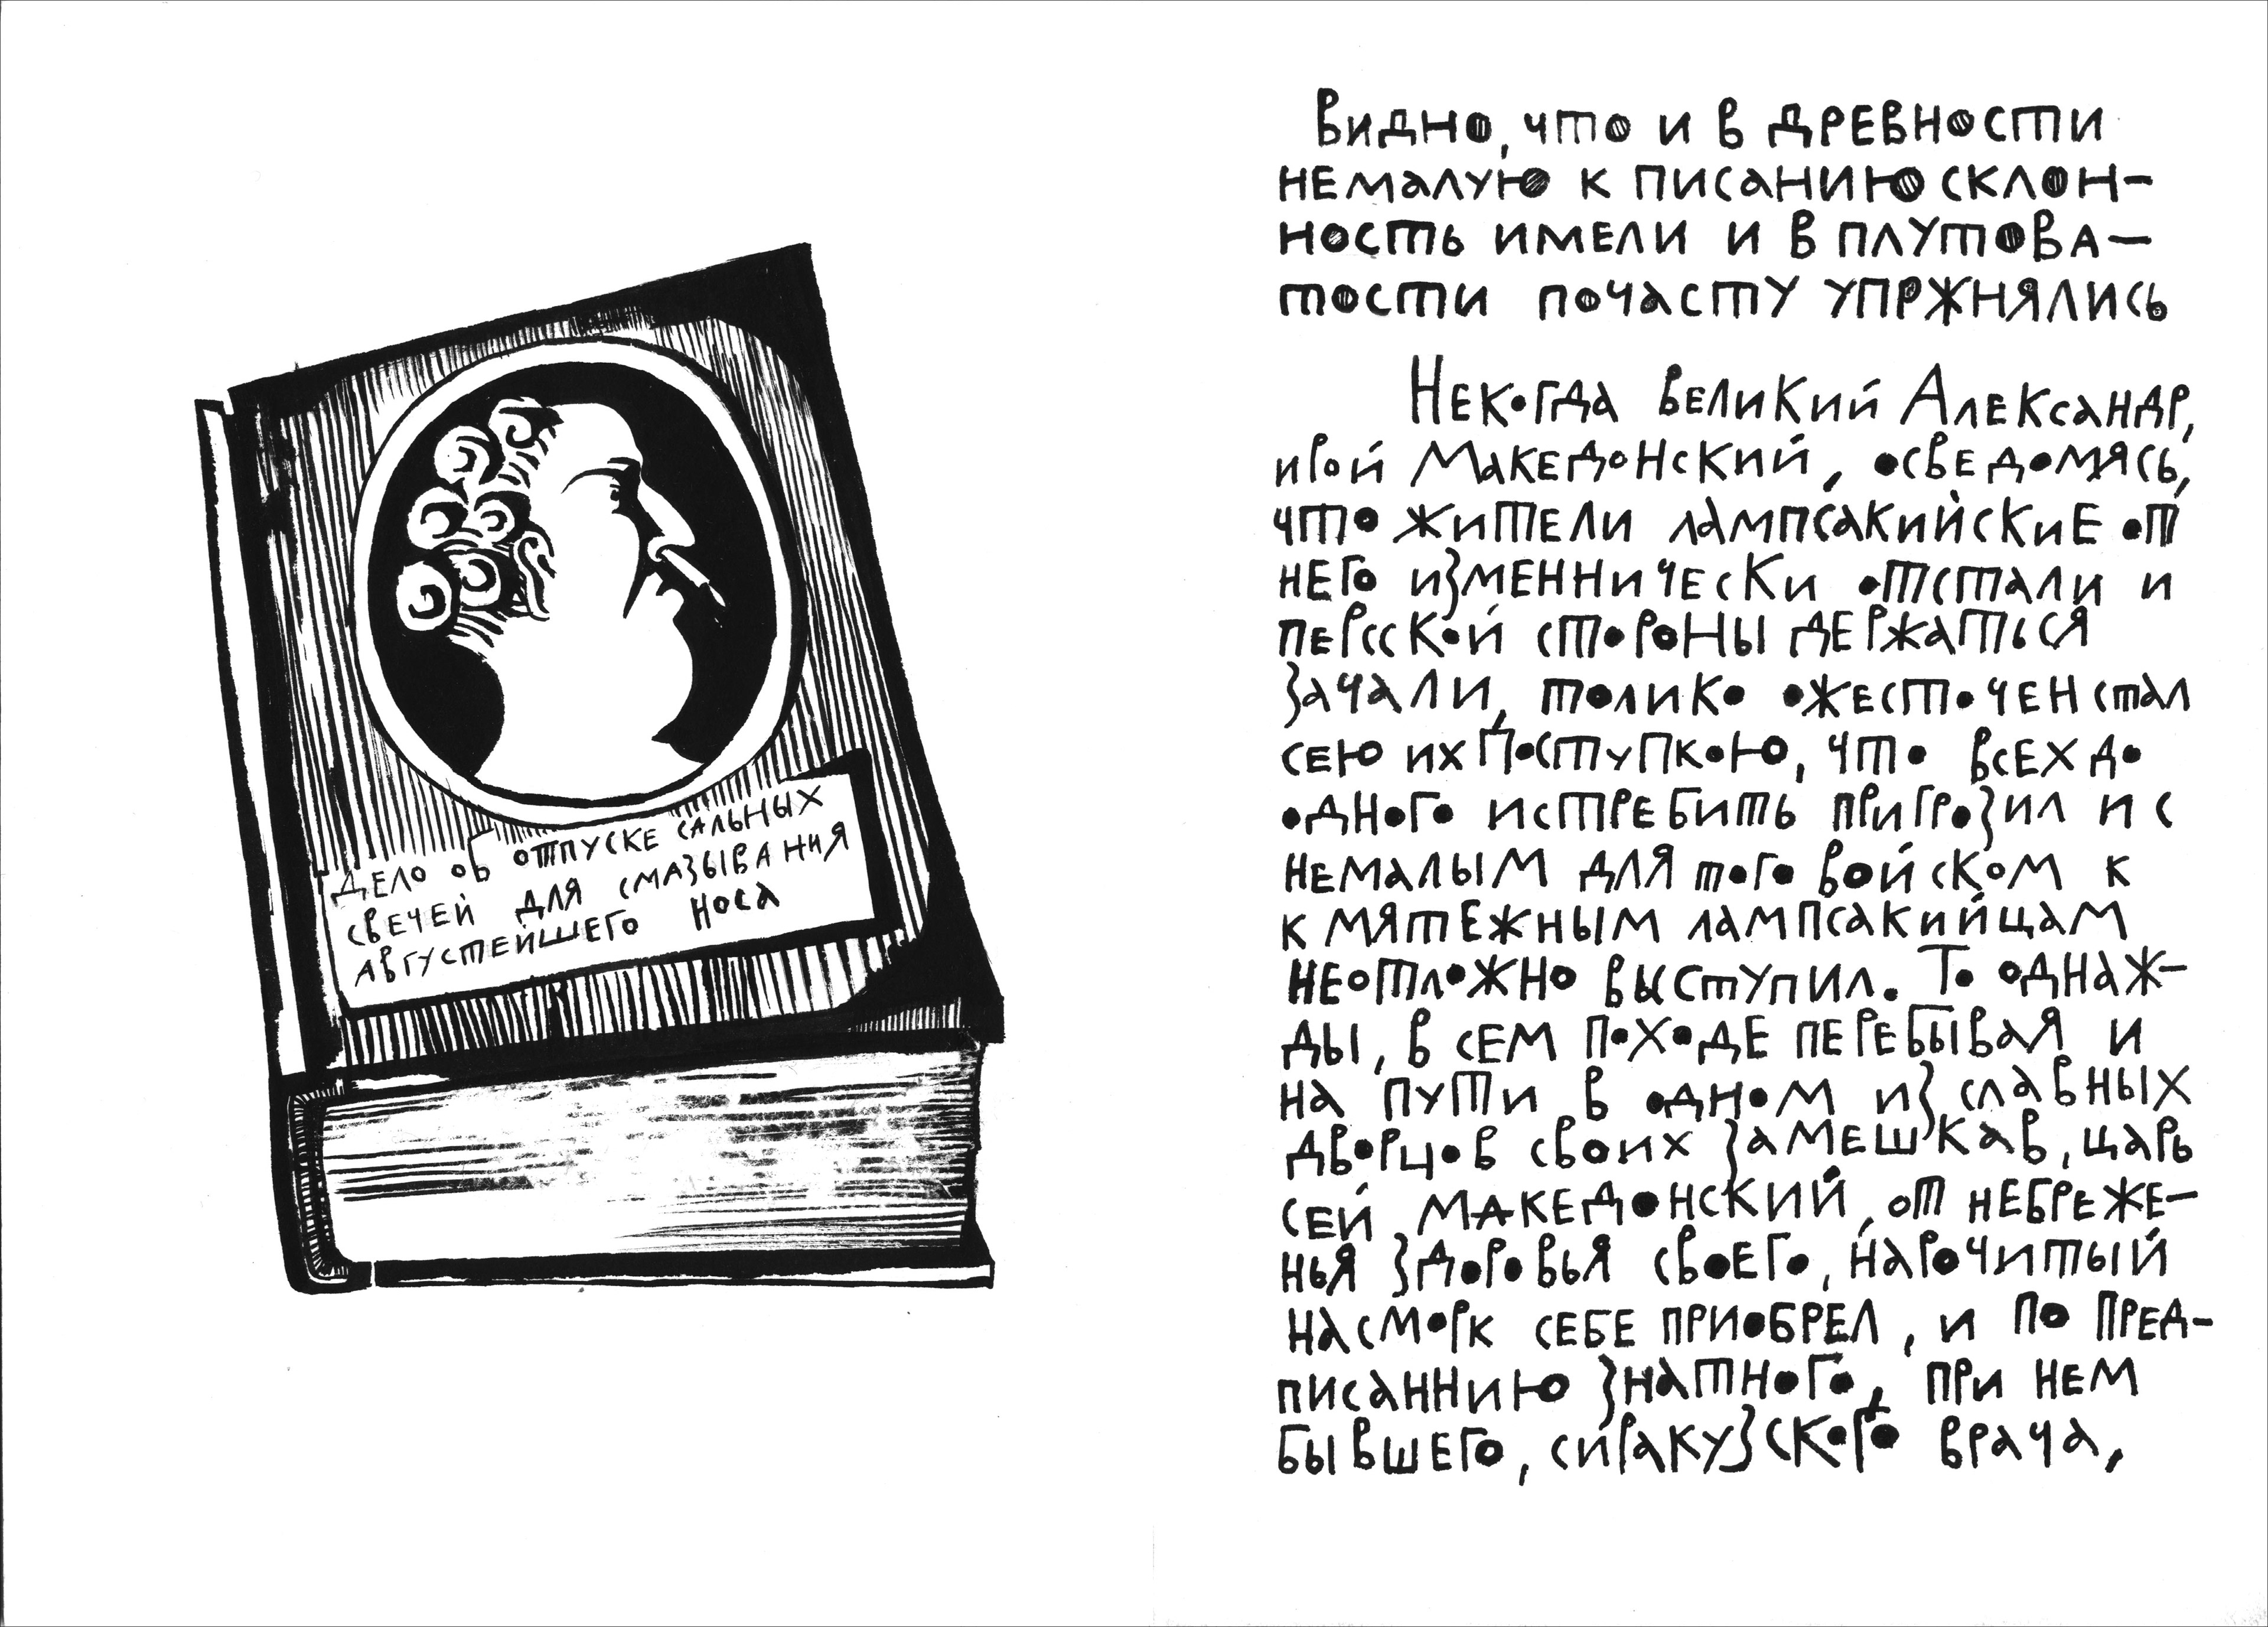 Дело об отпуске сальных
свечей для смазывания
августейшего носа
Видно, что и в древности
немалую к писанию склон-
ность имели и в плутова-
тости почасту упржнялись
Некогда великий Александр,
ирой Македонский, осведомясь,
что жители лампсакийские от
него изменнически отстали и
персской стороны держаться
зачали, толико ожесточен стал
сею их поступкою, что всех до
одного истребить пригрозил и с
немалым для того войском к
к мятежным лампсакийцам
неотложно выступил. То однаж-
ды, в сем походе перебывая и
на пути в одном из славных
дворцов своих замешкав, царь
сей македонский, от небреже-
нья здоровья своего, нарочитый
насморк себе приобрел, и по пред-
писаннию знатного, при нем
бывшего, сиракузского врача,